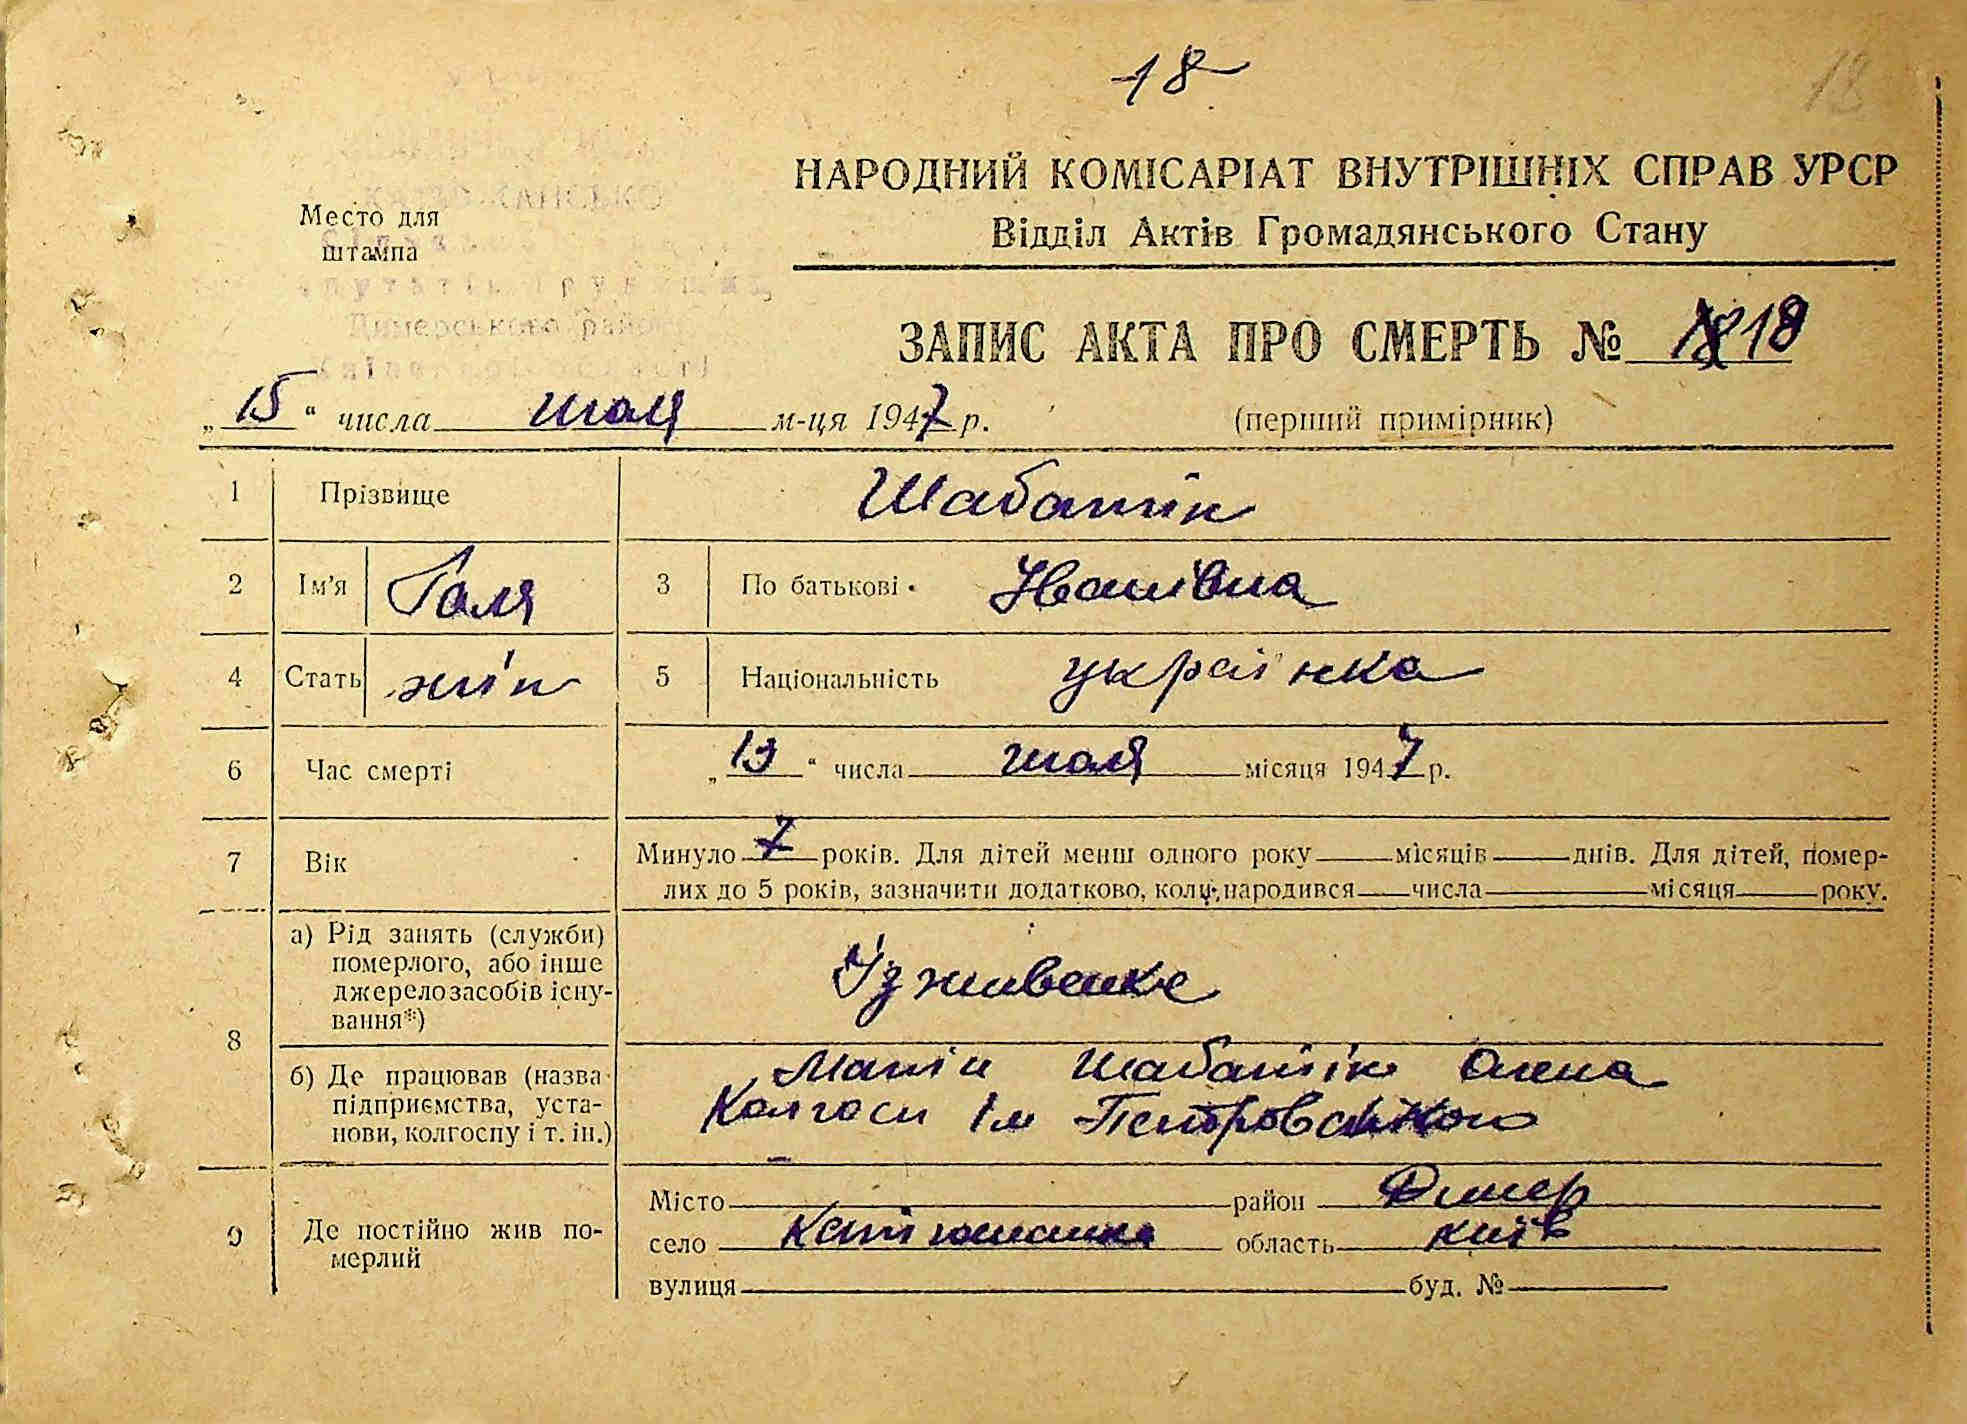 18
18
НАРОДНИЙ КОМІСАРІАТ ВНУТРІШНІХ СПРАВ УРСР
Відділ Актів Громадянського Стану
Место для
штампа
Димерського району
ЗАПИС АКТА ПРО СМЕРТЬ № 18
„15“ числа июля м-ця 1947 р. (перший примірник)
1 Прізвище Шабатін
2 Ім'я Галя 3 По батькові Іванівна
4 Стать жін 5 Національність українка
6 Час смерті „13“ числа июля місяця 1947 р.
7 Вік Минуло 7 років. Для дітей менш одного року місяців днів. Для дітей, помер-
лих до 5 років, зазначити додатково, коли народився числа місяця року.
8 а) Рід занять (служби)
померлого, або інше
джерело засобів існу-
вання*)
Ізживенке
б) Де працював (назва
підприємства, уста-
нови, колгоспу і т. ін.)
Матін Шабатін Олена
Колгосп Ім Петровського
9 Де постійно жив по-
мерлий
Місто район Димер
село Катюжанка область Київ
вулиця буд. №